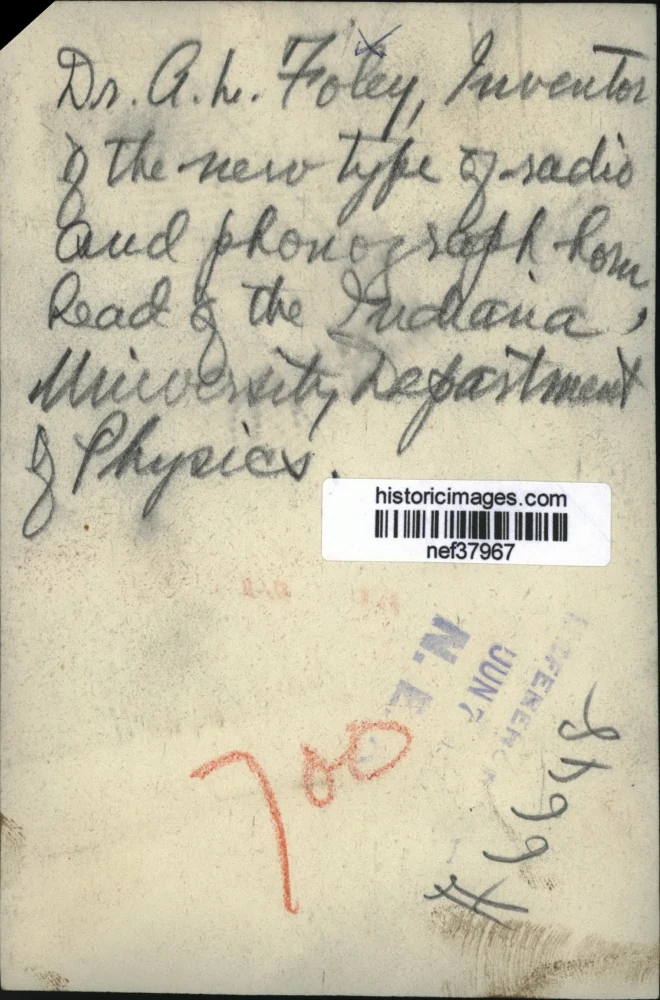 Dr. A. L. Foley, Inventor
of the new type of radio
and phonograph horn,
head of the Indiana
University Department
of Physics.
historicimages.com
nef37967
N. E.
JUN 7
REFERENCE
700